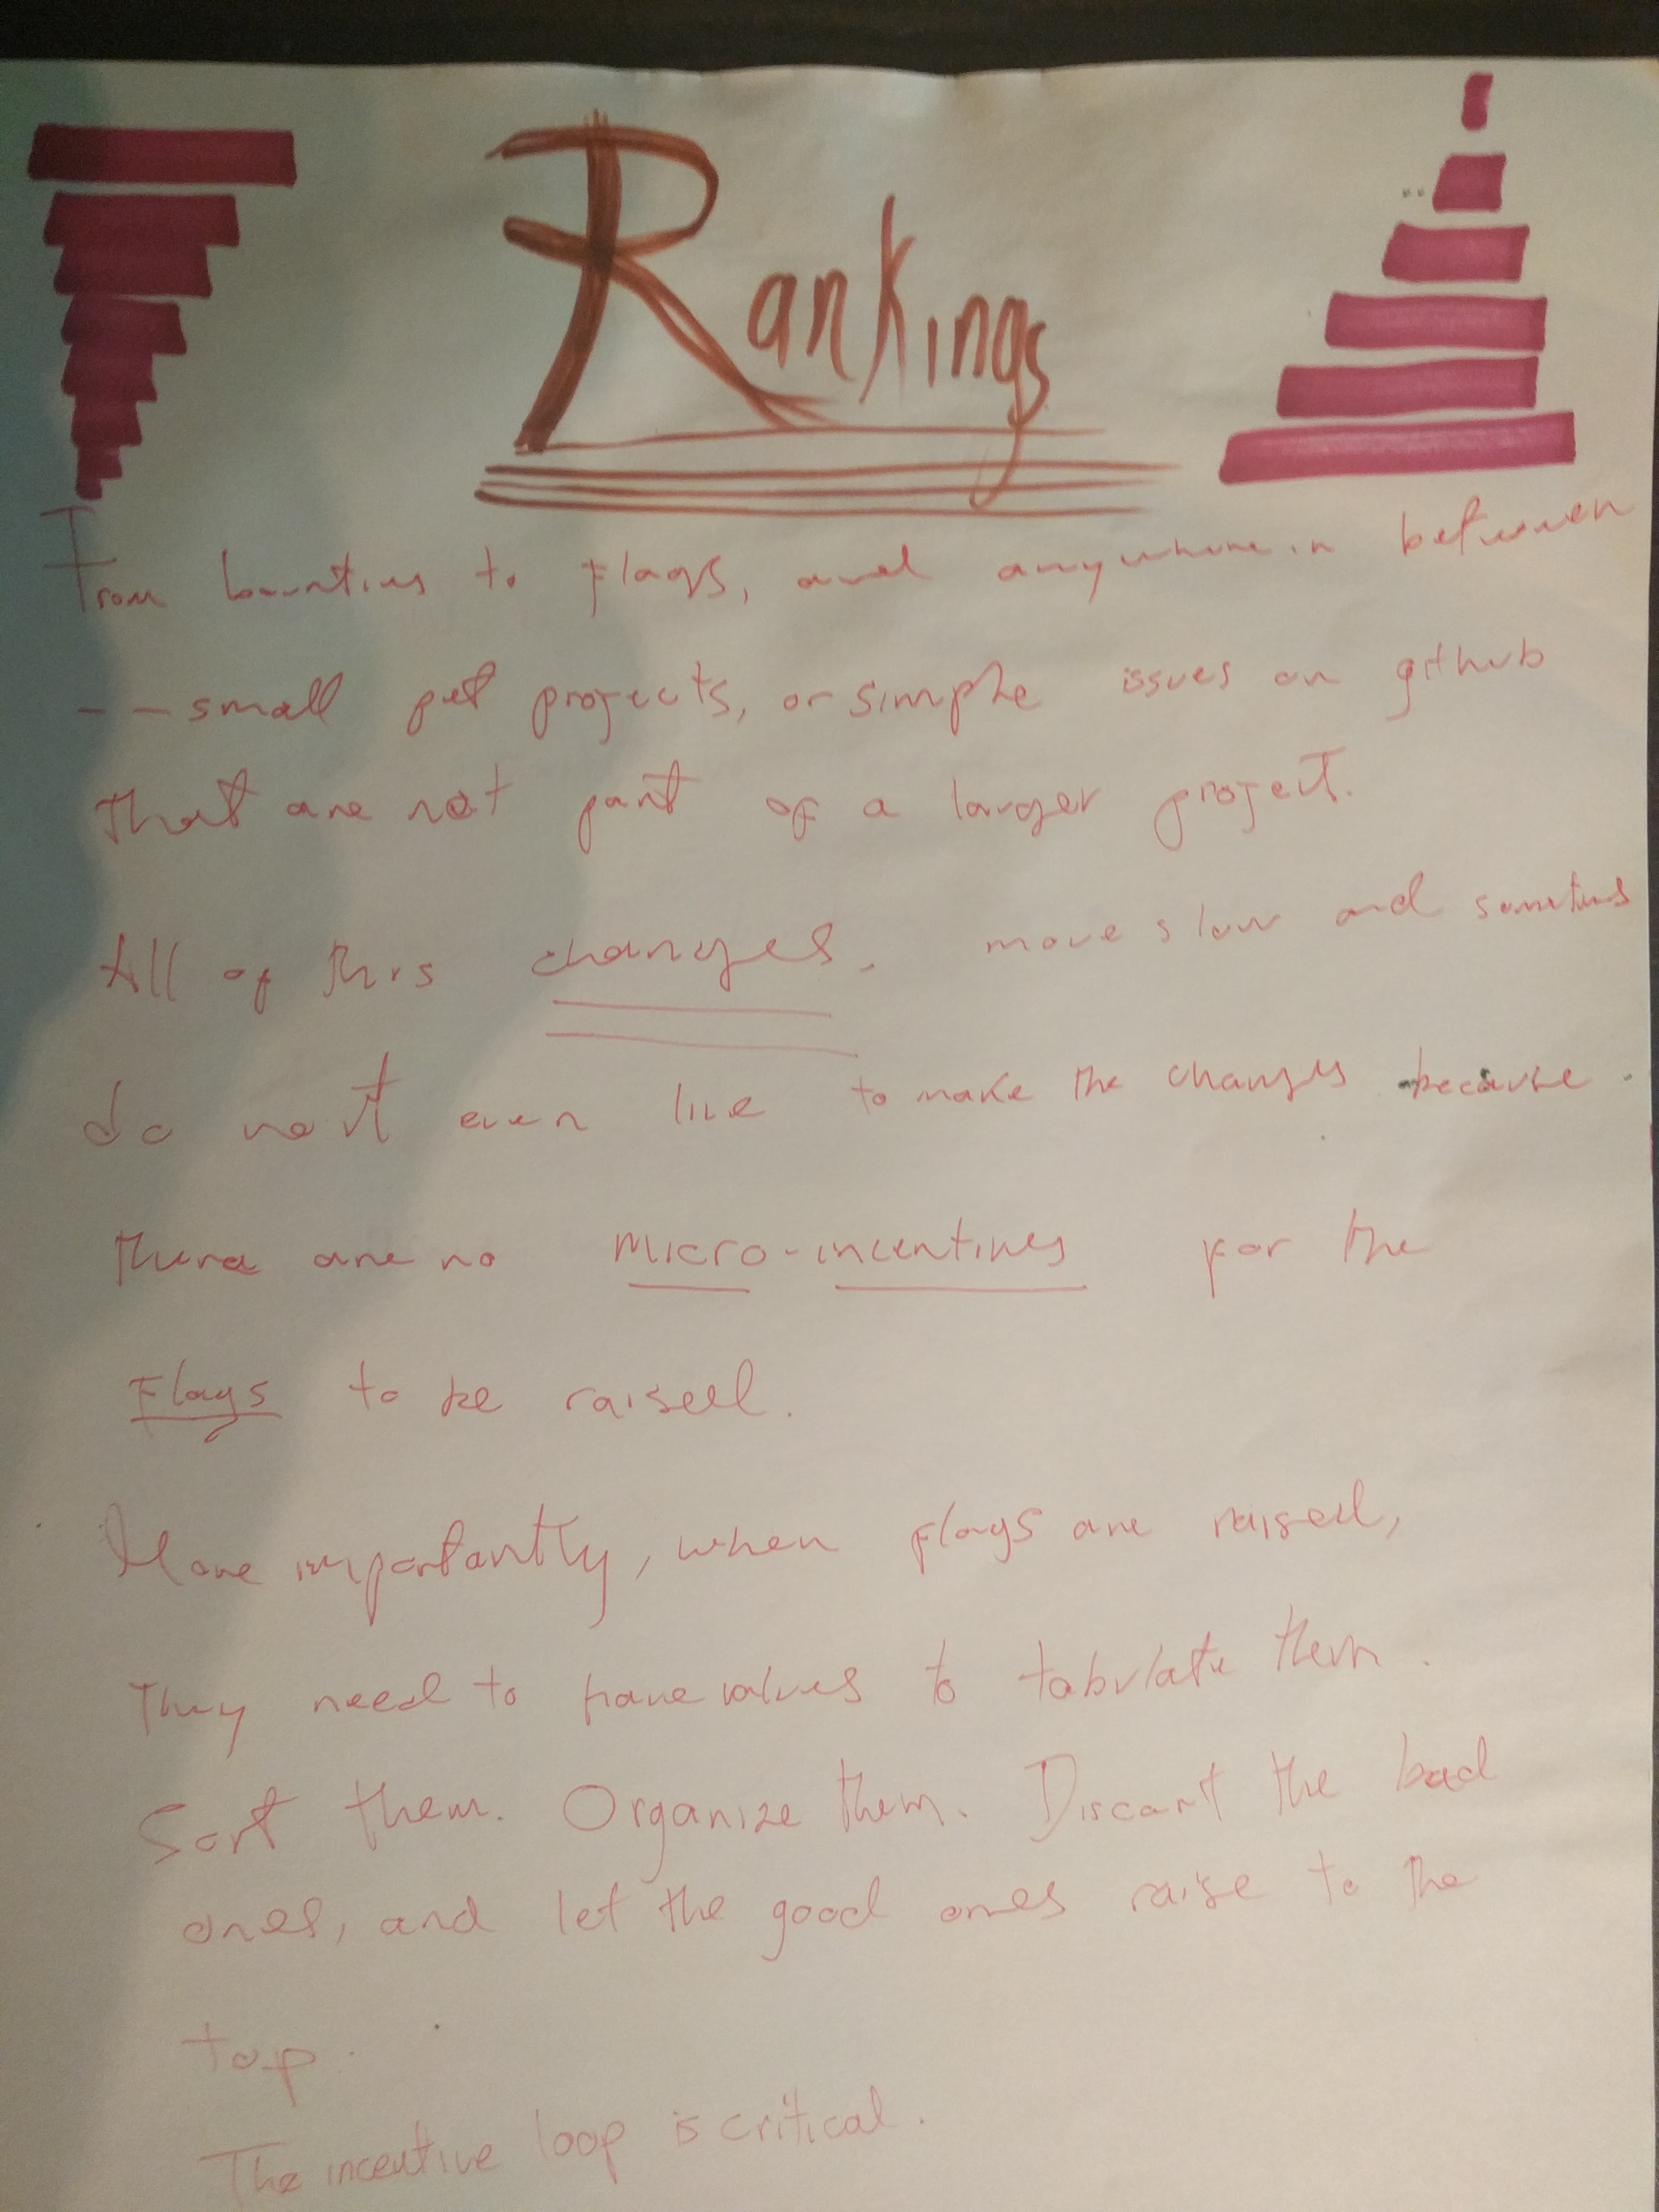 Rankings
From bounties to Flags, and anywhere in between
-- small pet projects, or simple issues on github
that are not part of a larger project.
All of this changes, move slow and sometimes
do not even live to make the changes because
there are no micro-incentives for the
Flags to be raised.
More importantly, when flags are raised,
They need to have values to tabulate them.
Sort them. Organize them. Discart the bad
ones, and let the good ones raise to the
top.
The incentive loop is critical.